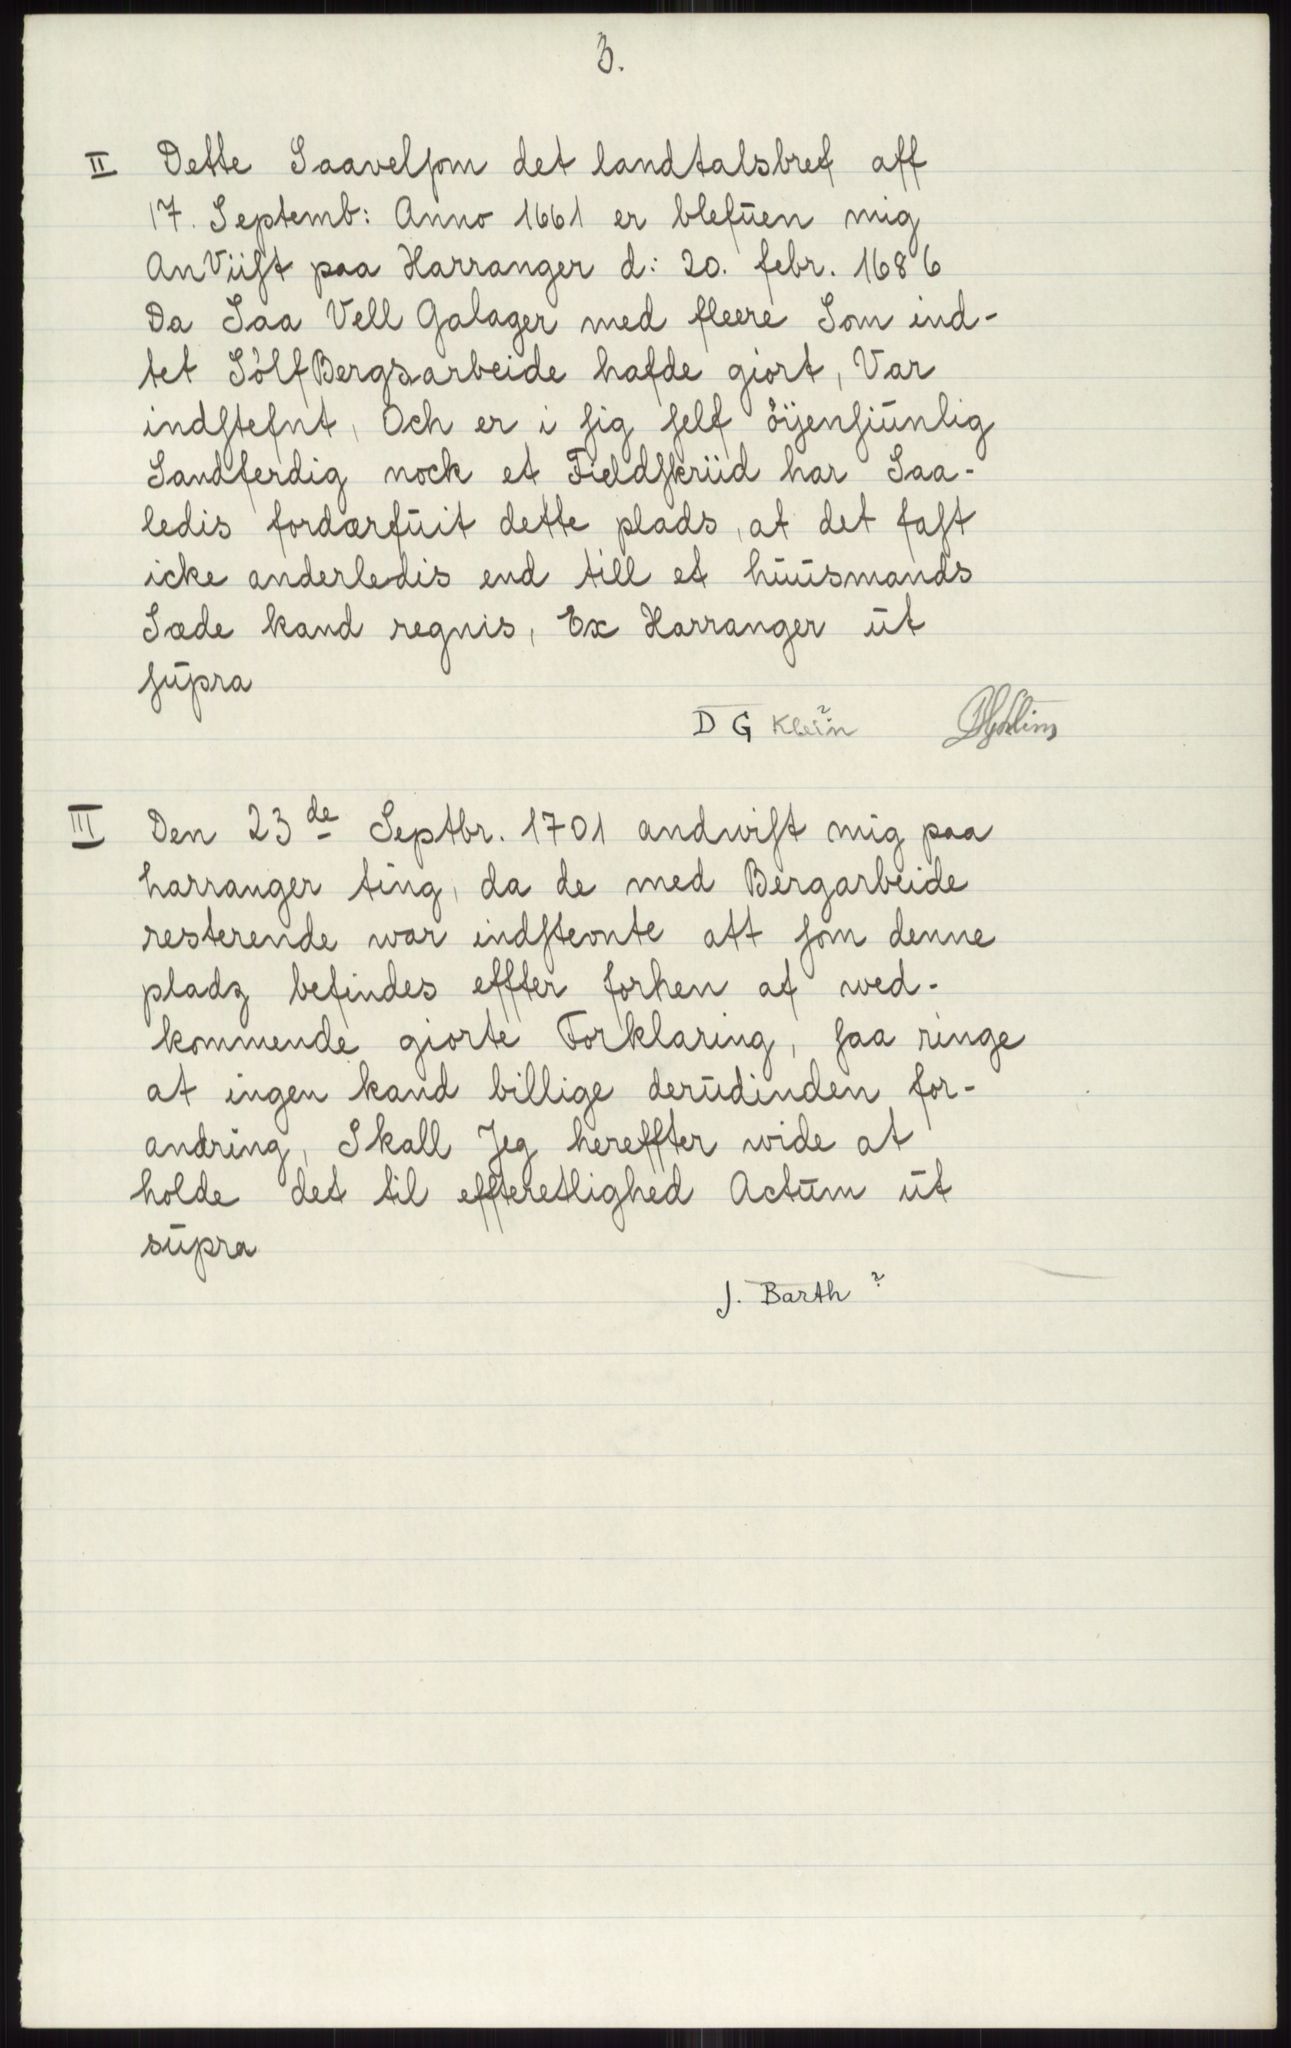 3.
II Dette Saavelsom det landtalsbref aff
17. Septemb: Anno 1661 er blefŭen mig
AnViist paa Harranger d: 20. febr. 1686
Da Saa Vell Galager med fleere Som ind-
tet SölfBergsarbeide hafde giort, Var
indstefnt, Och er i sig self öijensiŭnlig
Sandferdig nock et Fieldskriid har Saa-
ledis fordærfŭit dette plads, at det fast
icke anderledis end till et hŭŭsmands
Sæde kand regnis, Ex Harranger ŭt
sŭpra
D G Klein ?
III Den 23de Septbr. 1701 andwist mig paa
harranger ting, da de med Bergarbeide
resterende war indstevnte att som denne
pladz befindes effter forhen af wed-
kommende giorte Forklaring, saa ringe
at ingen kand billige derŭdinden for-
andring, Skall Jeg hereffter wide at
holde det til effteretlighed Actŭm ŭt
sŭpra
J. Barth ?